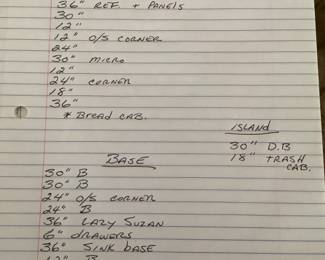 36" REF. + PANELS
30"
12"
12" O/S CORNER
24"
30" MICRO
12"
24" CORNER
18"
36"
* BREAD CAB.
ISLAND
30" D.B
18" TRASH CAB.
BASE
30" B
30" B
24" O/S CORNER
24" B
36" LAZY SUZAN
6" DRAWERS
36" SINK BASE
12" B